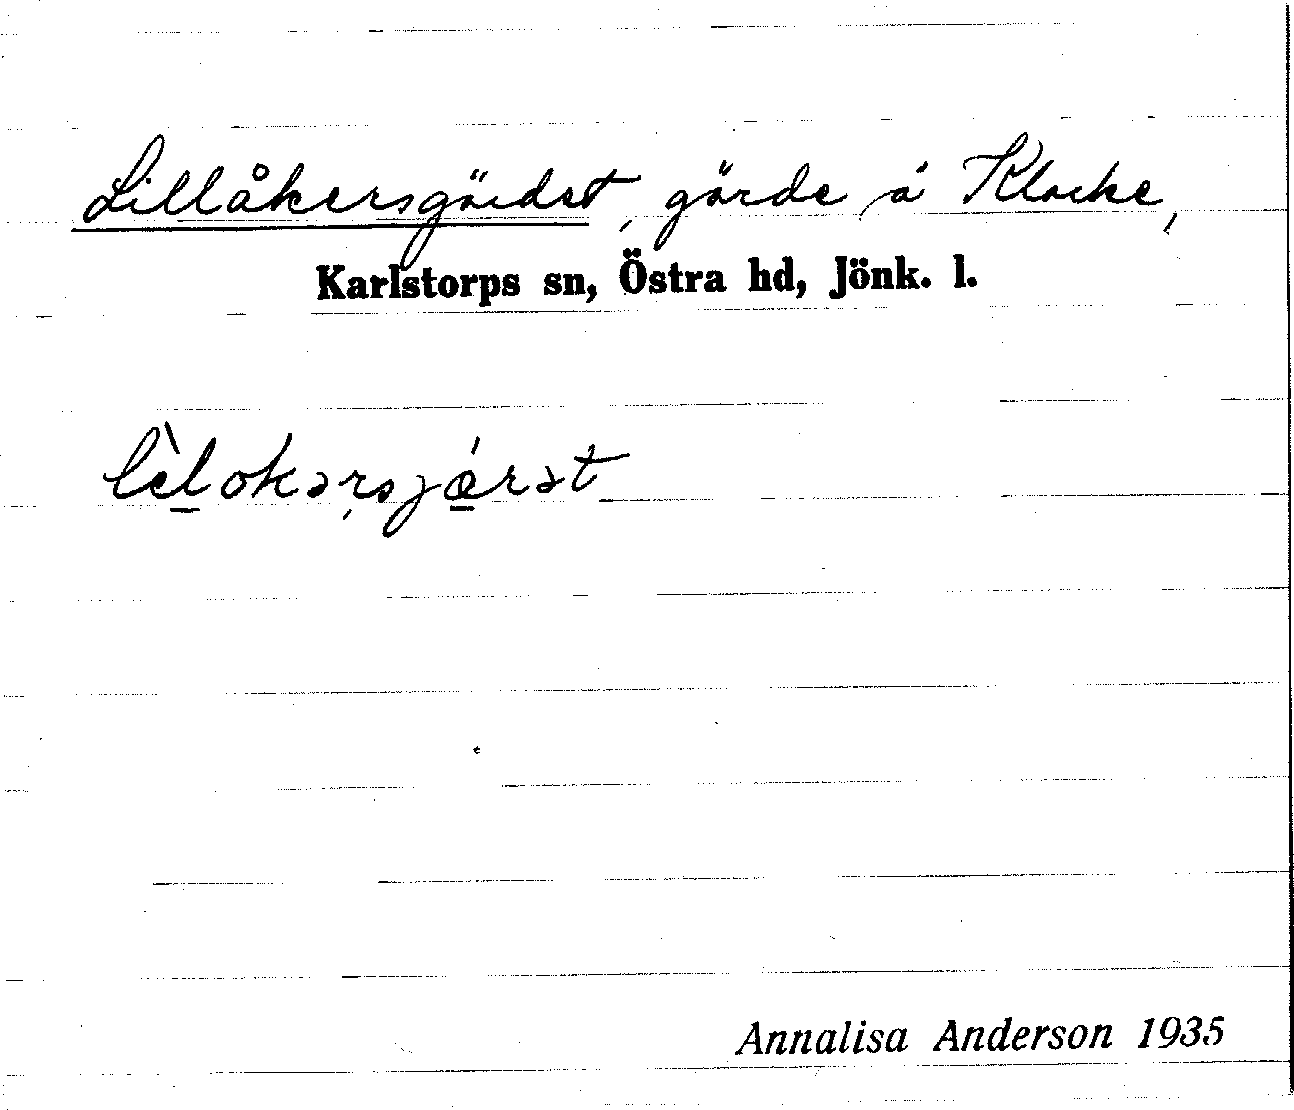 Lillåkersgärdet, gärde å Klocke,
Karlstorps sn, Östra hd, Jönk. l.
lìlokərsjǽrət
Annalisa Anderson 1935